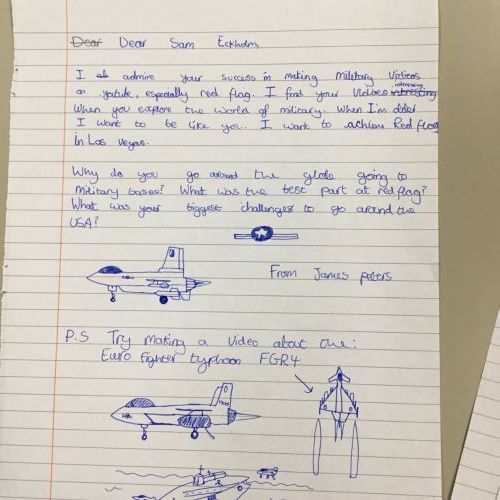 Dear Dear Sam Eckholm,
I admire your success in making military Videos
on youtube, especially red flag. I find your Videos interesting
When you explore the world of military. When I'm older
I want to be like you. I want to achieve Red flag
in Las vegas.
Why do you go around the globe going to
military bases? What was the best part at red flag?
What was your biggest challenges to go around the
USA?
From James peters
P.S Try making a video about the:
Euro fighter typhoon FGR4